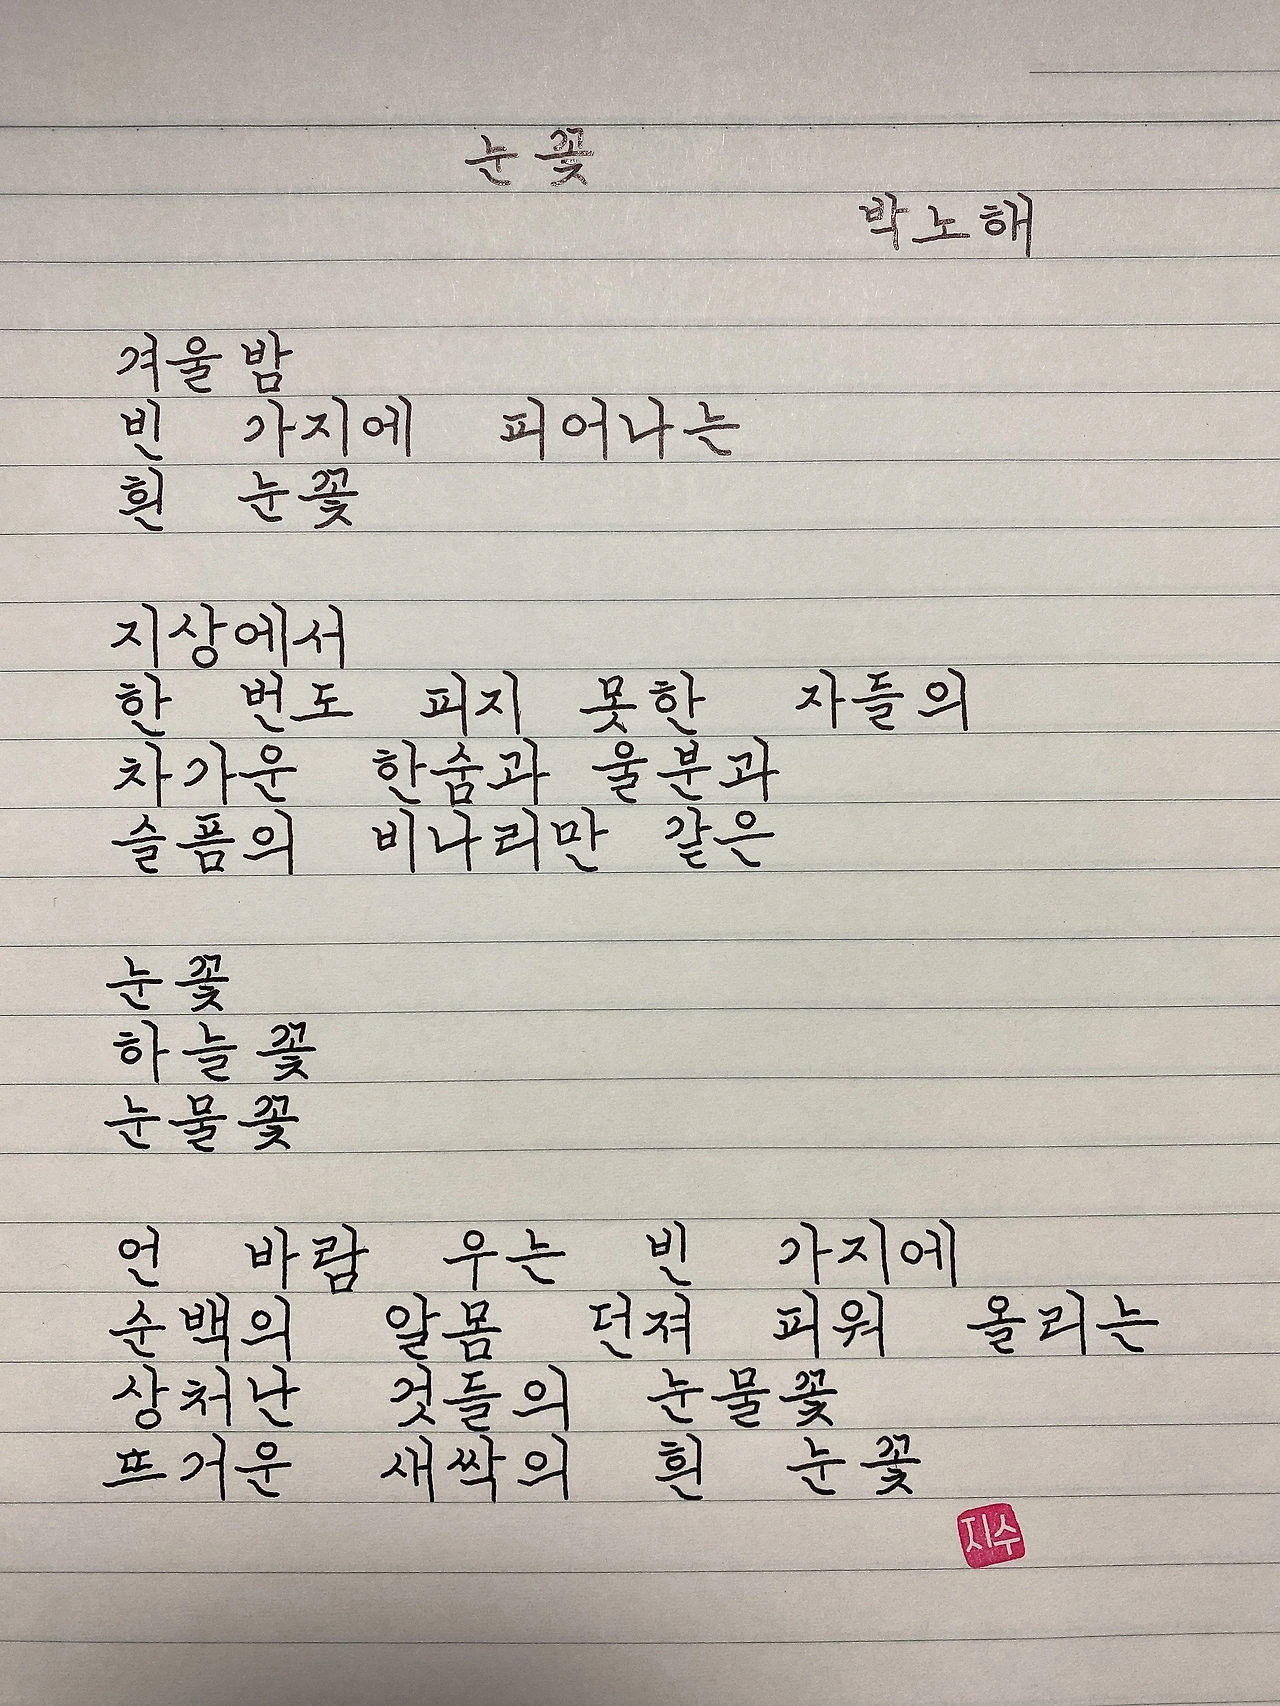 눈꽃
박노해
겨울밤
빈 가지에 피어나는
흰 눈꽃
지상에서
한 번도 피지 못한 자들의
차가운 한숨과 울분과
슬픔의 비나리만 같은
눈꽃
하늘꽃
눈물꽃
언 바람 우는 빈 가지에
순백의 알몸 던져 피워 올리는
상처난 것들의 눈물꽃
뜨거운 새싹의 흰 눈꽃
지수